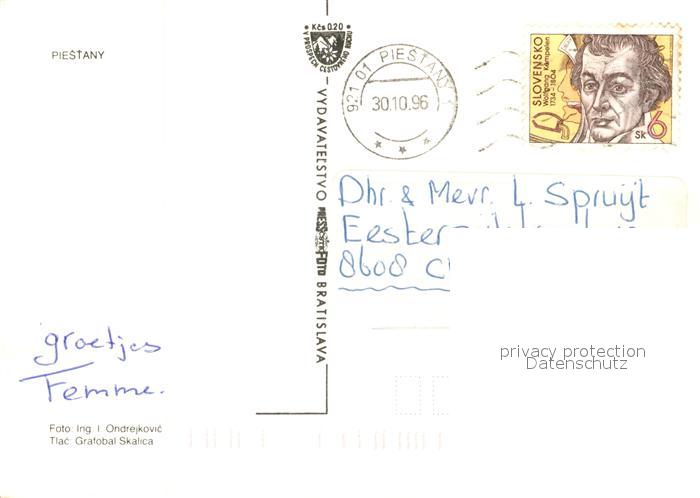 PIEŠŤANY
Kčs 0.20
V PROSPECH CESTOVNÉHO RUCHU
VYDAVATEĽSTVO PRESSFOTO BRATISLAVA
921 01 PIEŠŤANY 1
30.10.96
SLOVENSKO
Wolfgang Kempelen
1734-1804
Sk 6
Dhr. & Mevr. L. Spruijt
Eester
8608 C
groetjes
Femme.
privacy protection
Datenschutz
Foto: Ing. I. Ondrejkovič
Tlač: Grafobal Skalica